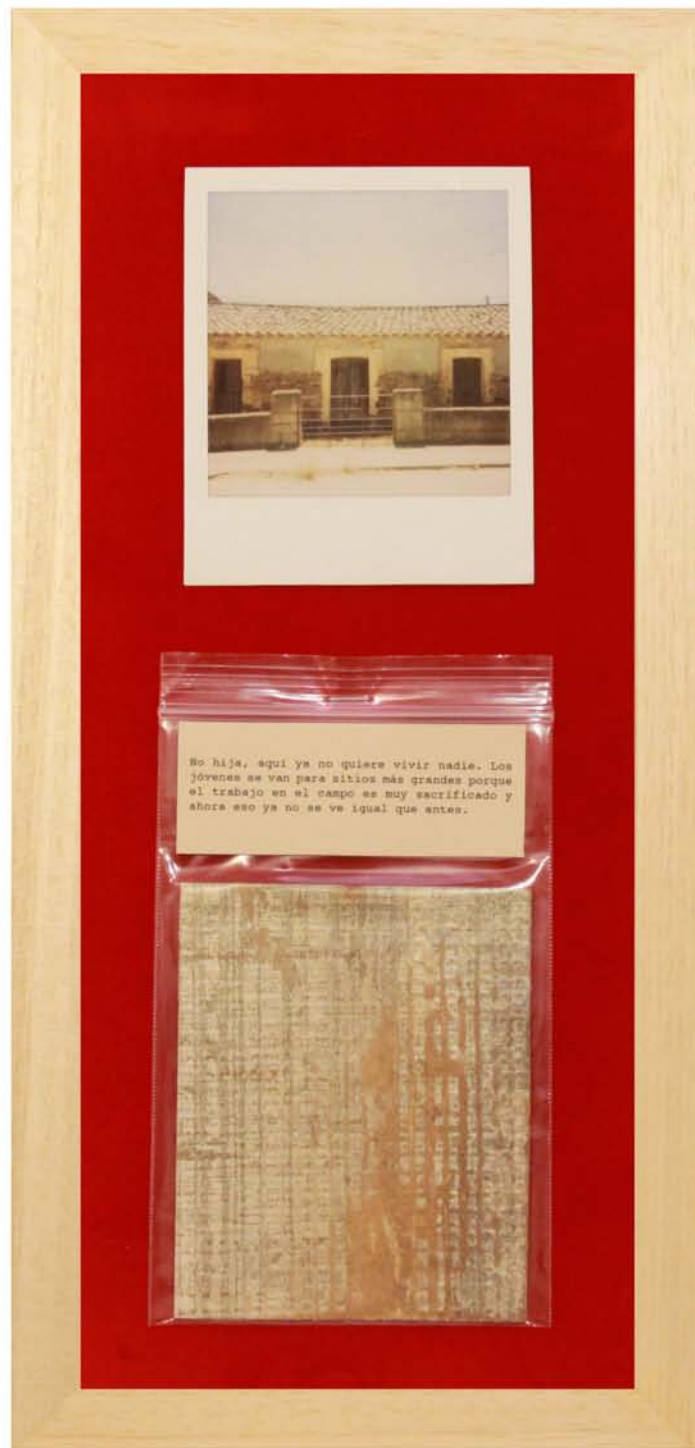 No hija, aquí ya no quiere vivir nadie. Los
jóvenes se van para sitios más grandes porque
el trabajo en el campo es muy sacrificado y
ahora eso ya no se ve igual que antes.